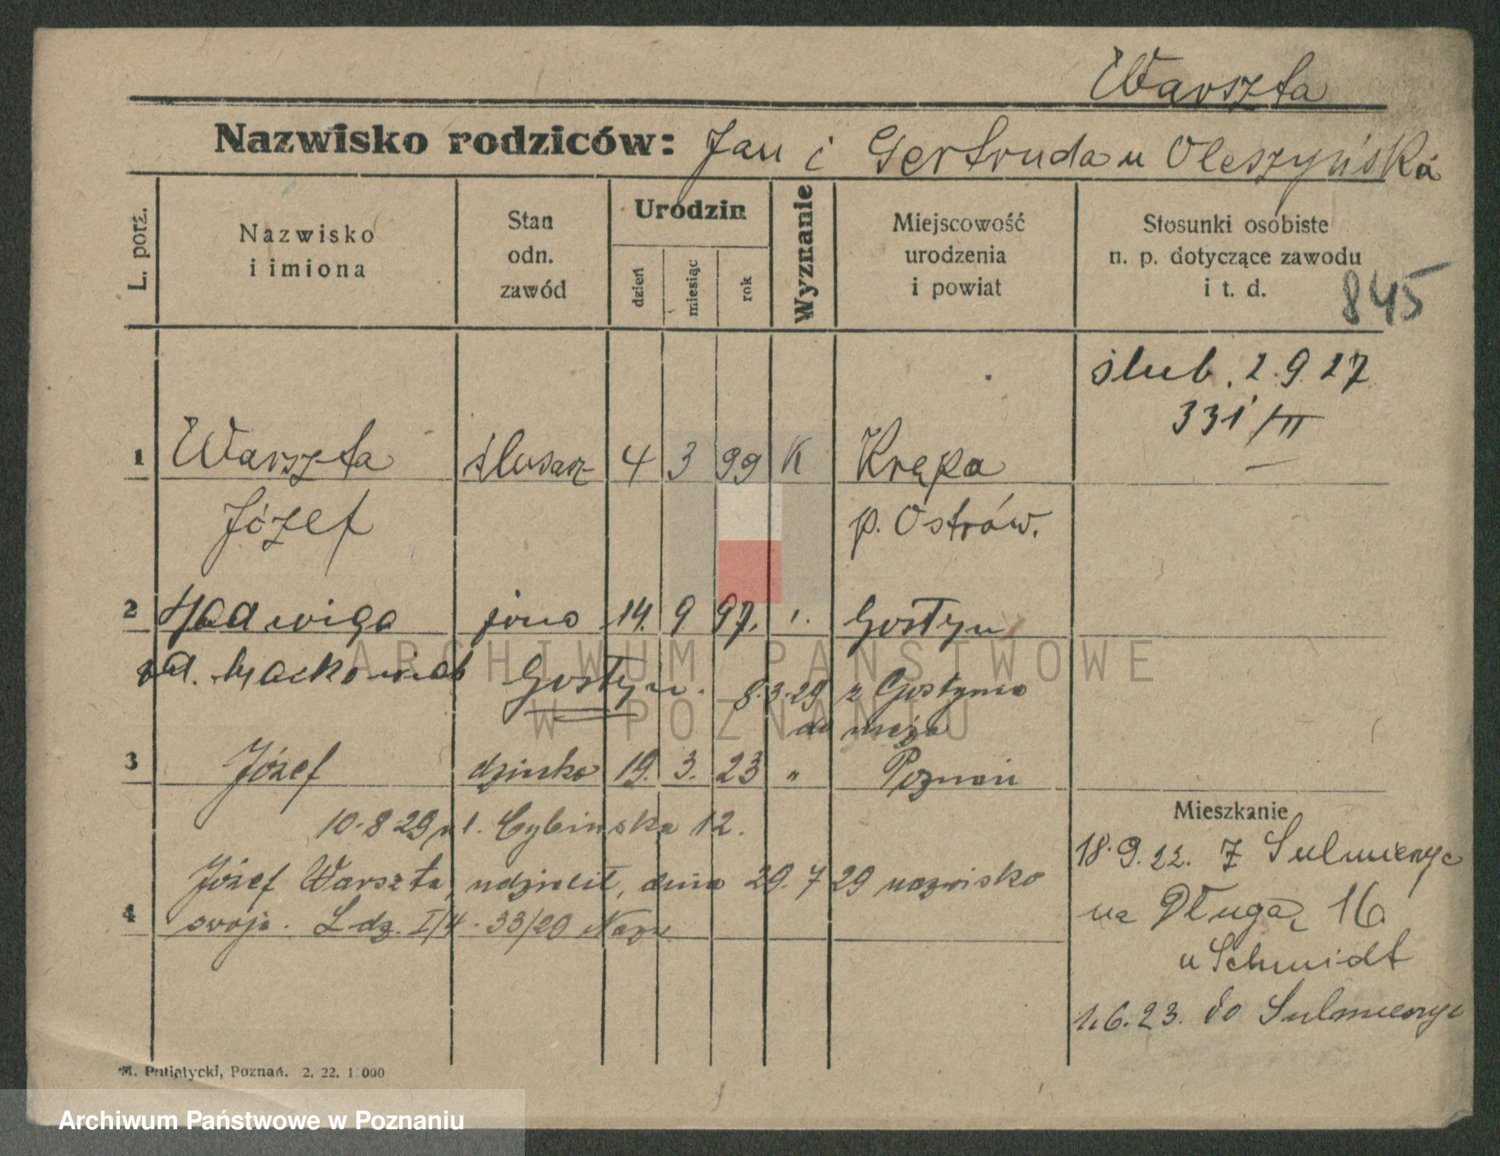 Warszta
Nazwisko rodziców: Jan i Gertruda u Oleszyńska
L. porz.
Nazwisko
i imiona
Stan
odn.
zawód
Urodzin
dzień
miesiąc
rok
Wyznanie
Miejscowość
urodzenia
i powiat
Stosunki osobiste
n. p. dotyczące zawodu
i t. d.
845
ślub. 2.9.27
331/III
1 Warszta ślusarz 4 3 99 K Krępa
Józef p. Ostrów.
2 Jadwiga żona 14. 9 97. ". Gostyn
Maćkowiak Gostyn. 8.3.29 z Gostynia
do męża
3 Józef dziecko 19. 3. 23 " Poznań
10.8 29 ul. Cybińska 12.
Józef Warszta, udzielił, dnia 29. 7 29 nazwisko
4 swoje. L dz. I/4. 33/29
Mieszkanie
18.9.22. z Sulmierzyc
na Długą 16
u Schmidt
1.6.23. do Sulmierzyc
M. Putiatycki, Poznań. 2. 22. 1.000
ARCHIWUM PAŃSTWOWE
W POZNANIU
Archiwum Państwowe w Poznaniu